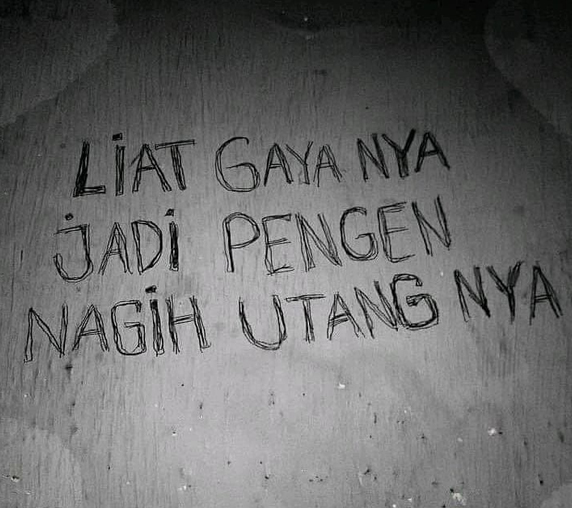 LiAT GAYA NYA
jADi PENGEN
NAGiH UTANG NYA